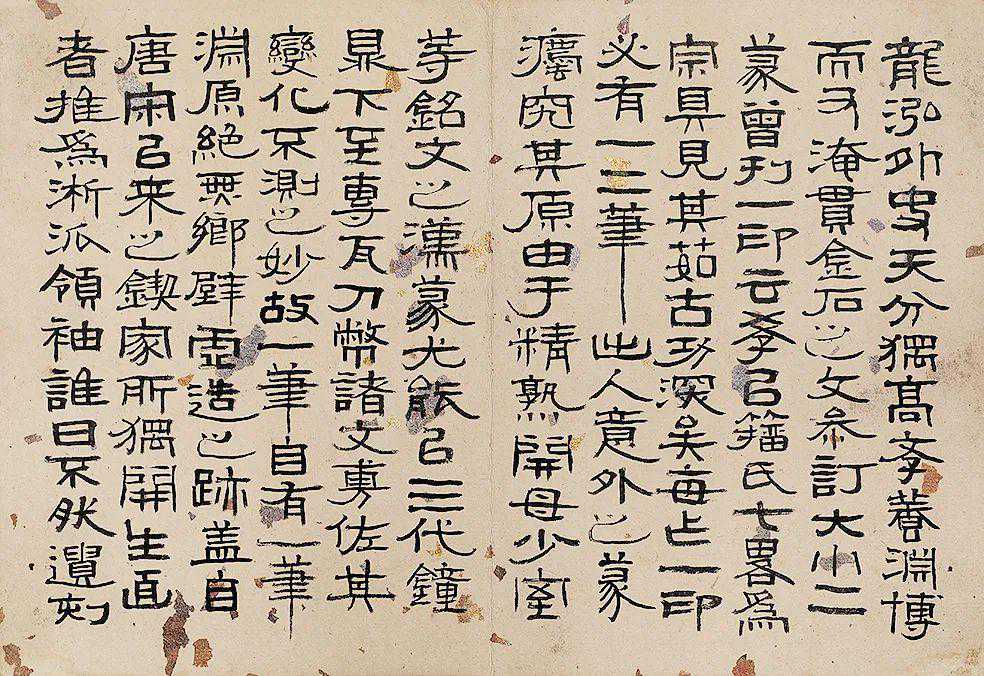 龍泓外史天分獨高斈養淵博
而又淹貫金石之文叅訂大小二
篆曾刋一印云斈㠯籀氏七畧爲
宗具見其茹古功深矣每乍一印
必有一二筆出人意外之篆
灋究其原由于精熟開母少室
等銘文之漢篆尤能㠯三代鐘
鼎下至專瓦刀幣諸文旉佐其
變化不測之妙故一筆自有一筆
淵原絕無鄉壁虛造之跡蓋自
唐宋㠯来之鍥家所獨開生面
者推爲淅派領袖誰曰不肰遺刻